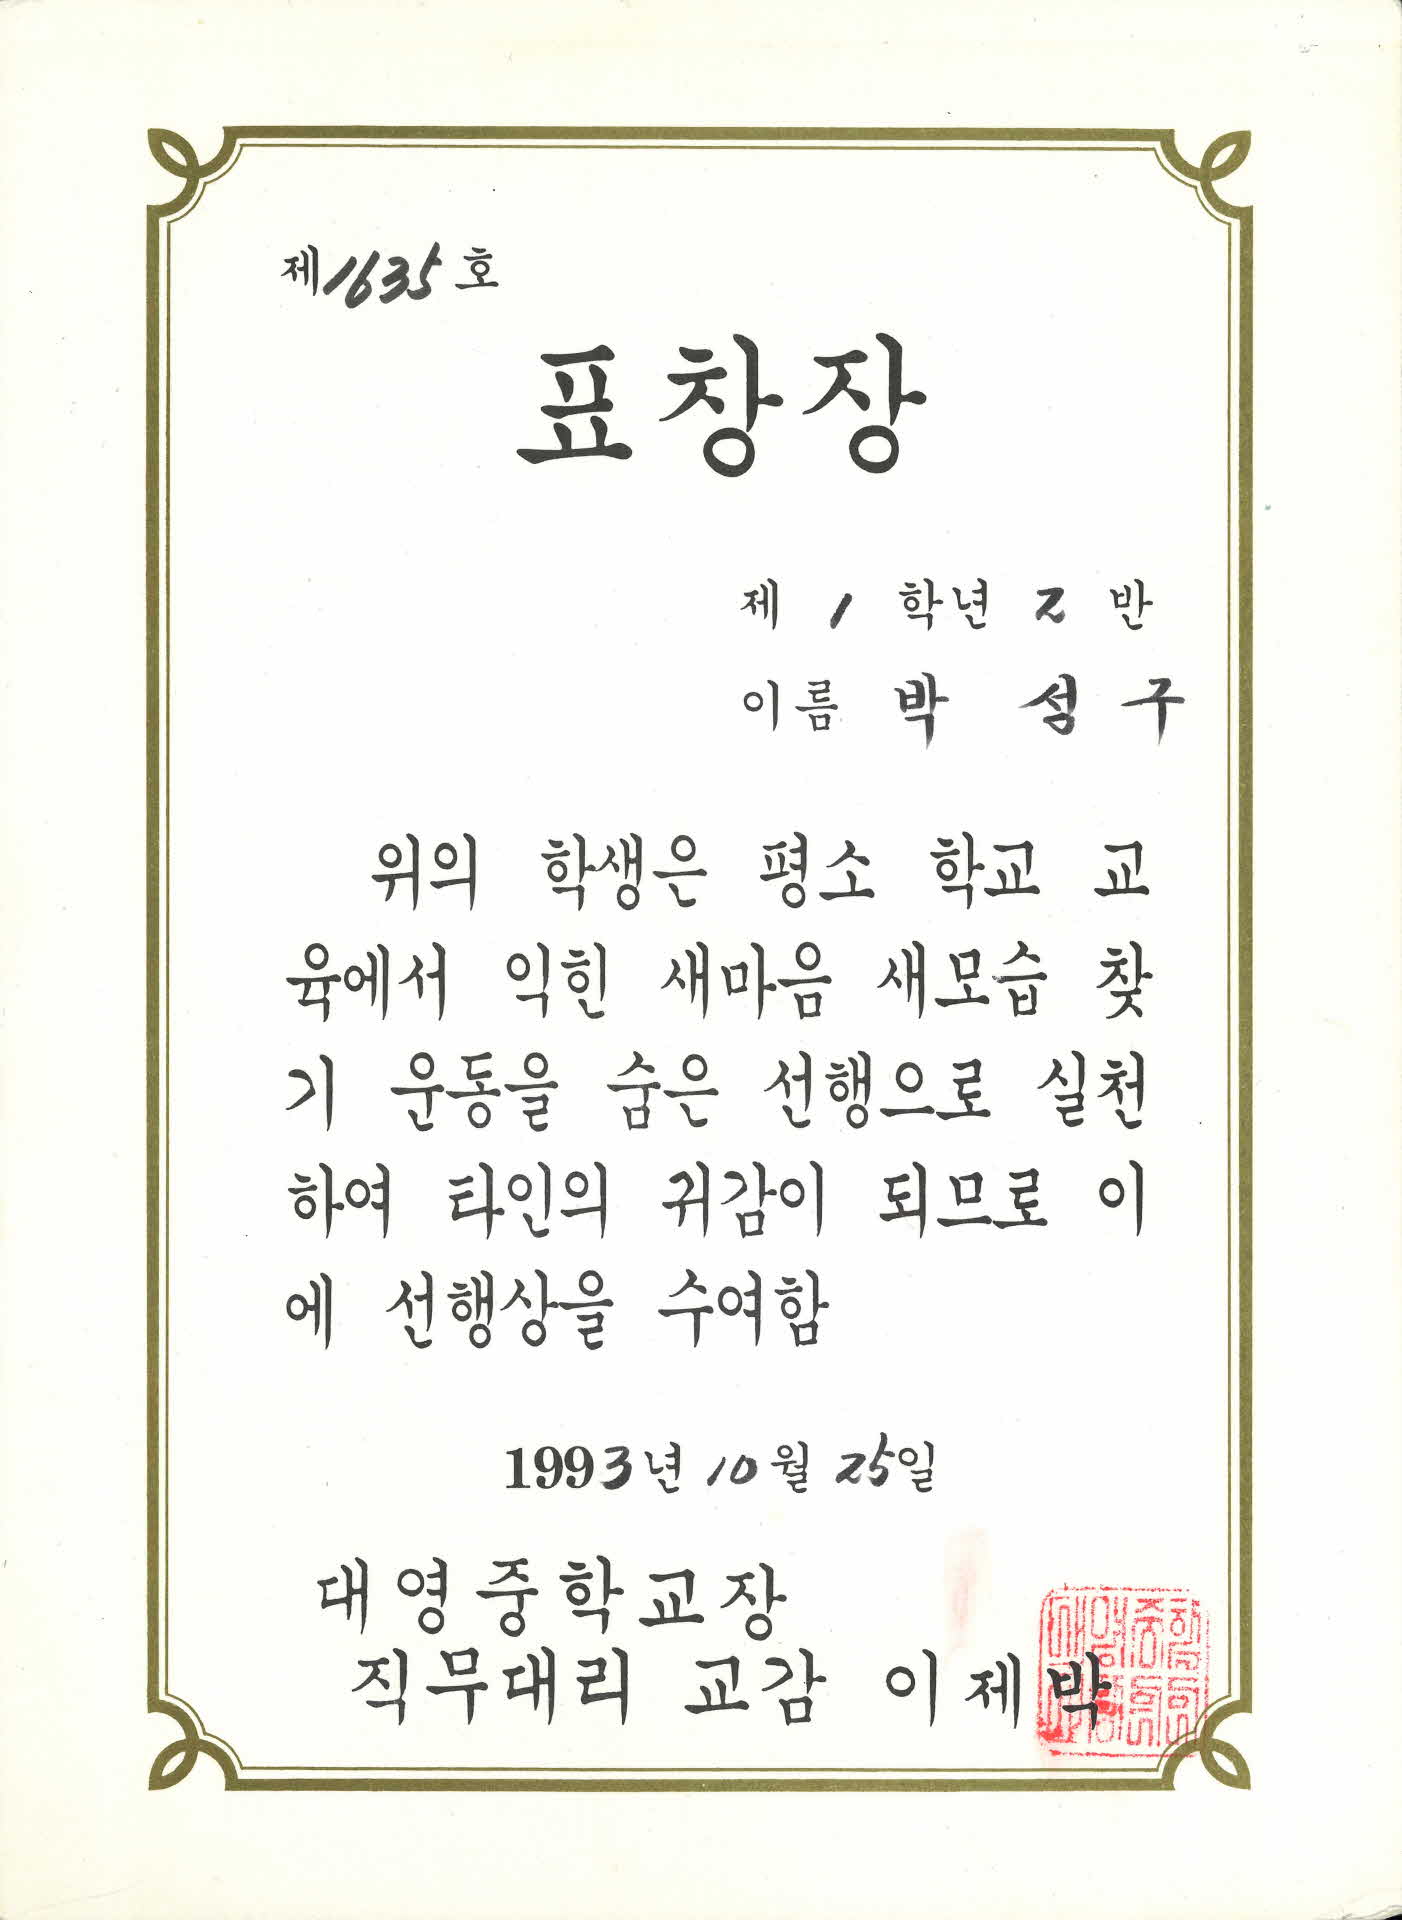 제1635호
표창장
제 1 학년 2 반
이름 박 성 구
위의 학생은 평소 학교 교
육에서 익힌 새마음 새모습 찾
기 운동을 숨은 선행으로 실천
하여 타인의 귀감이 되므로 이
에 선행상을 수여함
1993년 10월 25일
대영중학교장
직무대리 교감 이제박